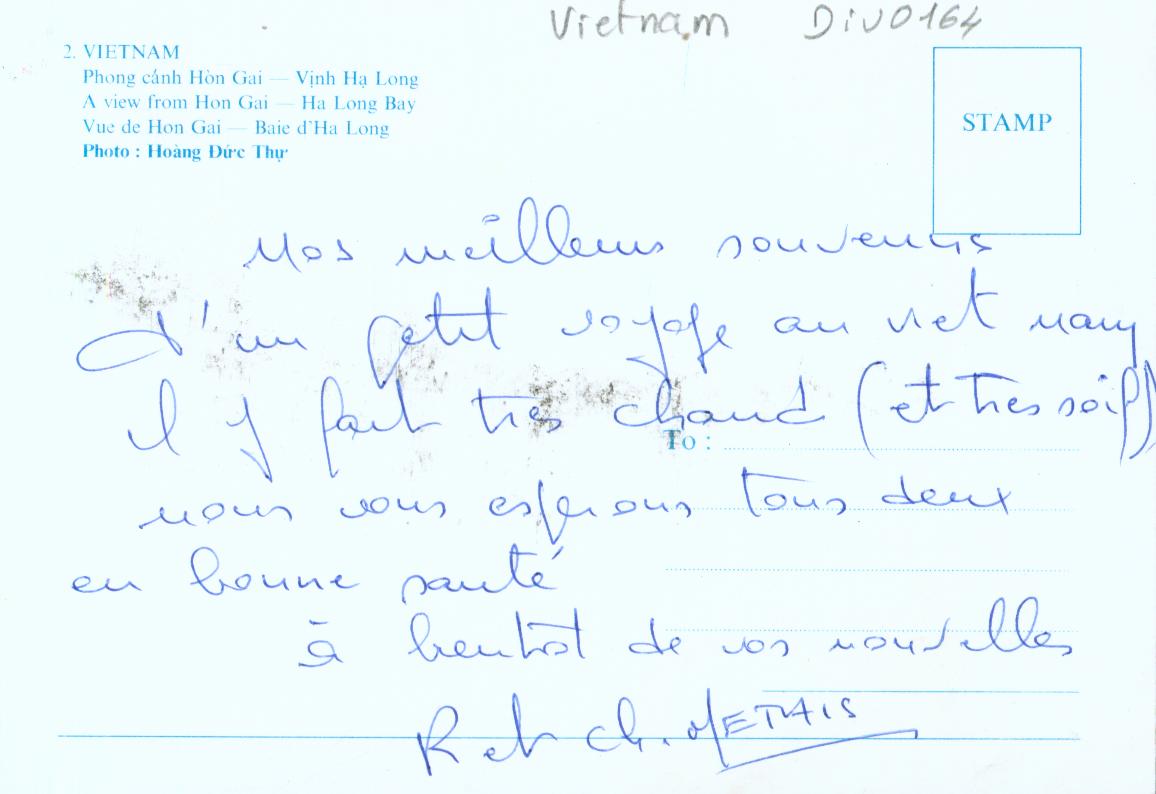 Vietnam DIV0164
2. VIETNAM
Phong cảnh Hòn Gai — Vịnh Hạ Long
A view from Hon Gai — Ha Long Bay
Vue de Hon Gai — Baie d'Ha Long
Photo : Hoàng Đức Thự
STAMP
Nos meilleurs souvenirs
d'un petit voyage au viet nam
il y fait très chaud (et très soif)
To :
nous vous espérons tous deux
en bonne santé
à bientôt de vos nouvelles
R et Ch. METAIS